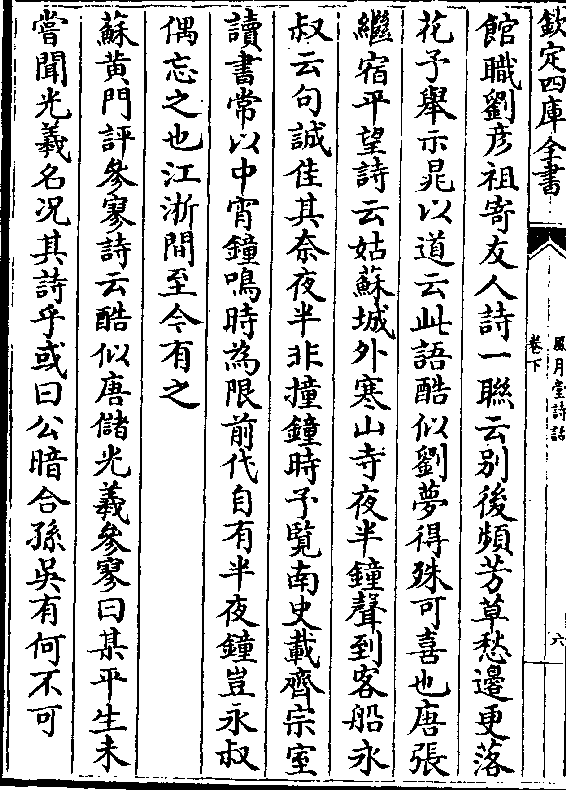 欽定四庫全書
風月堂詩話
卷下
六
館職劉彦祖寄友人詩一聯云别後頻芳草愁邊更落
花予舉示晁以道云此語酷似劉夢得殊可喜也唐張
繼宿平望詩云姑蘇城外寒山寺夜半鐘聲到客船永
叔云句誠佳其奈夜半非撞鐘時予覧南史載齊宗室
讀書常以中宵鐘鳴時為限前代自有半夜鐘豈永叔
偶忘之也江浙間至今有之
蘇黄門評參寥詩云酷似唐儲光羲參寥曰某平生未
嘗聞光羲名况其詩乎或曰公暗合孫吳有何不可